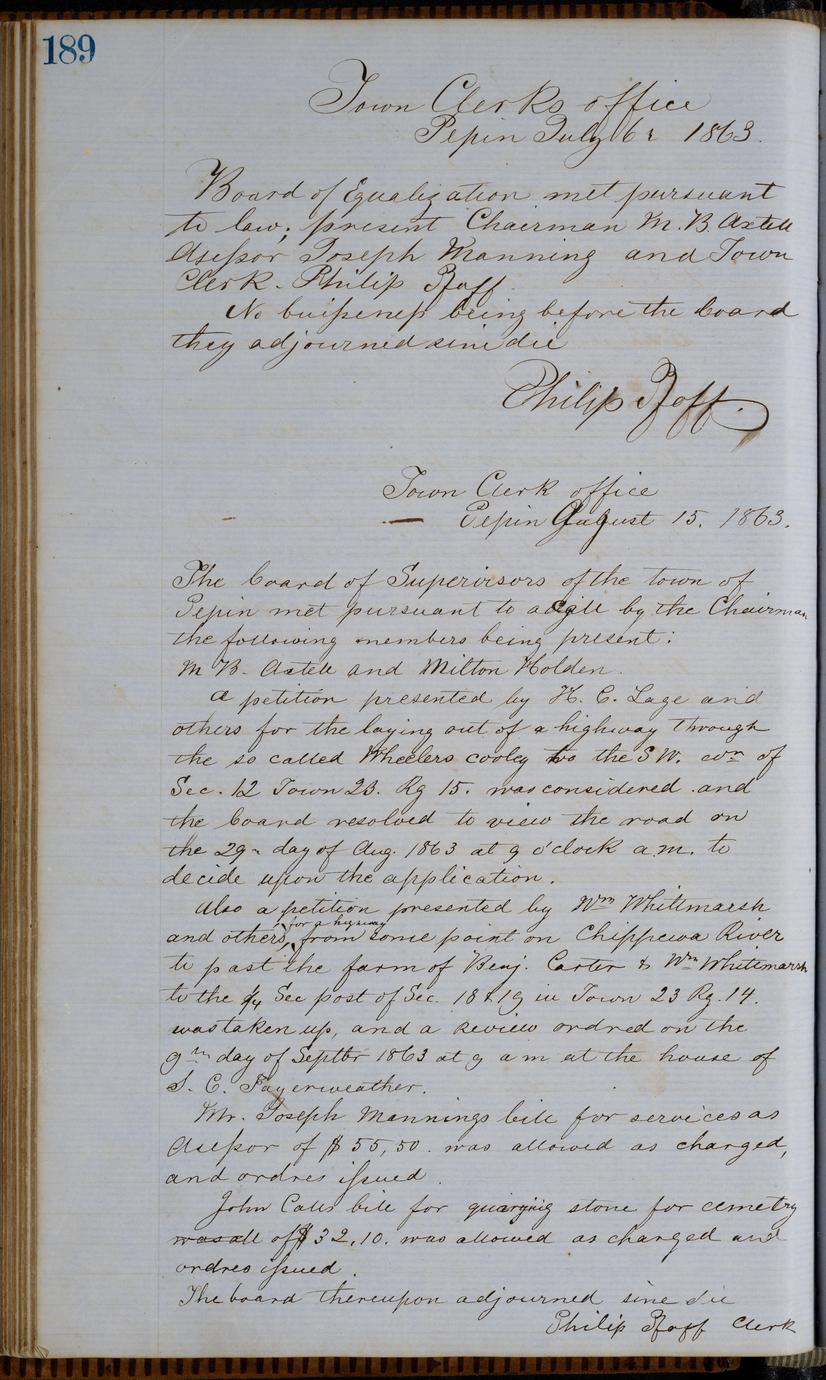 189
Town Clerks office
Pepin July 6th 1863.
Board of Equalization met pursuant
to law; present Chairman M. B. Axtell
Assessor Joseph Manning and Town
Clerk. Philip Pfaff.
No buissness being before the board
they adjourned sine die
Philip Pfaff.
Town Clerk office
Pepin August 15. 1863.
The board of Supervisors of the town of
Pepin met pursuant to a call by the Chairman
the following members being present:
M. B. Axtell and Milton Holden.
A petition presented by H. C. Lage and
others for the laying out of a highway through
the so called Wheelers cooley to the S W. corn of
Sec. 12 Town 23. Rg 15. was considered and
the board resolved to view the road on
the 29th day of Aug. 1863 at 9 o'clock a.m. to
decide upon the application.
Also a petition presented by Wm Whitmarsh
and others, for a highway from some point on Chippewa River
to past the farm of Benj. Carter & Wm Whitmarsh
to the 1/4 Sec post of Sec. 18 & 19 in Town 23 Rg. 14.
was taken up, and a review ordred on the
9th day of Septbr 1863 at 9 a m at the house of
S. C. Fayerweather.
Mr. Joseph Mannings bill for services as
Assessor of $ 55,50. was allowed as charged,
and ordres issued.
John bill for stone for cemetry
was all of $ 32,10. was allowed as charged and
ordres issued.
The board thereupon adjourned sine die
Philip Pfaff Clerk